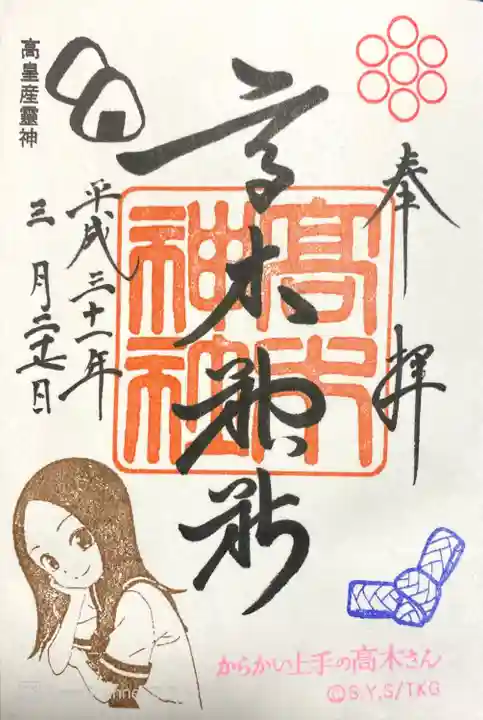 奉拝
高木神社
高木神社
平成三十一年
三月二十七日
高皇産靈神
からかい上手の高木さん
©S.Y,S/TKG